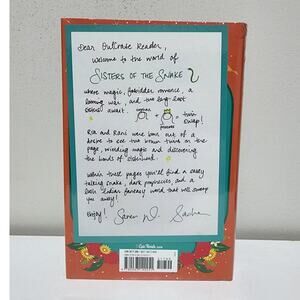 Dear OwlCrate Reader,
Welcome to the world of
SISTERS OF THE SNAKE
where magic, forbidden romance, a
looming war, and two long-lost
sisters await.
twin
swap!
princess
Ria and Rani were born out of a
desire to see two brown twins on the
page, wielding magic and discovering
the bonds of sisterhood.
Within these pages you'll find a sassy
talking snake, dark prophecies, and a
lush Indian fantasy world that will sweep
you away!
Enjoy!
Sasha